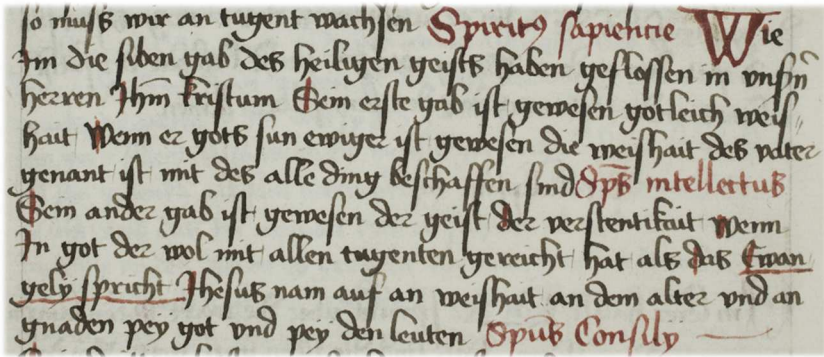 so muss wir an tugent wachsen Spiritꝯ sapiencie Wie
Im die siben gab des heiligen geists haben geflossen in vnsñ
herren Jhm̄ kristum Sein erste gab ist gewesen gotleich weis
hait Wenn er gots sun ewiger ist gewesen die weishait des vater
genant ist mit des alle ding beschaffen sind Sp̄s intellectus
Sein ander gab ist gewesen der geist der verstentikait wenn
In got der wol mit allen tugenten gereicht hat als das Ewan
gely spricht Jhesus nam auf an weishait an dem alter vnd an
gnaden pey got vnd pey den leuten Spūs Consily